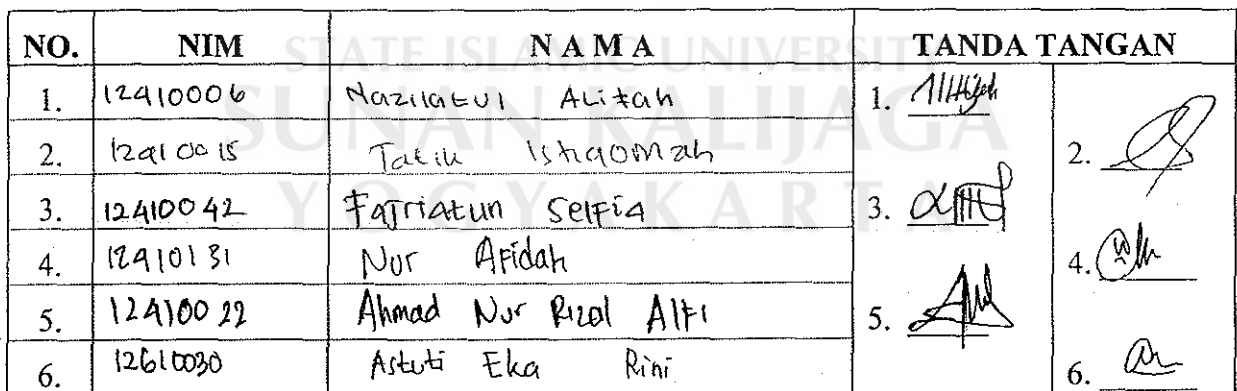 NO. NIM NAMA TANDA TANGAN
STATE ISLAMIC UNIVERSITY
SUNAN KALIJAGA
YOGYAKARTA
1. 12410006 Nazilatul Alifah 1.
2. 12410015 Tatik Istiqomah 2.
3. 12410042 Fajriatun Selfia 3.
4. 12410131 Nur Afidah 4.
5. 12410022 Ahmad Nur Rizal Alfi 5.
6. 12610030 Astuti Eka Rini 6.